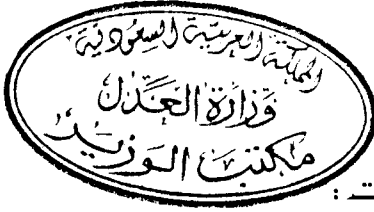 المملكة العربية السعودية
وزارة العدل
مكتب الوزير
ت :